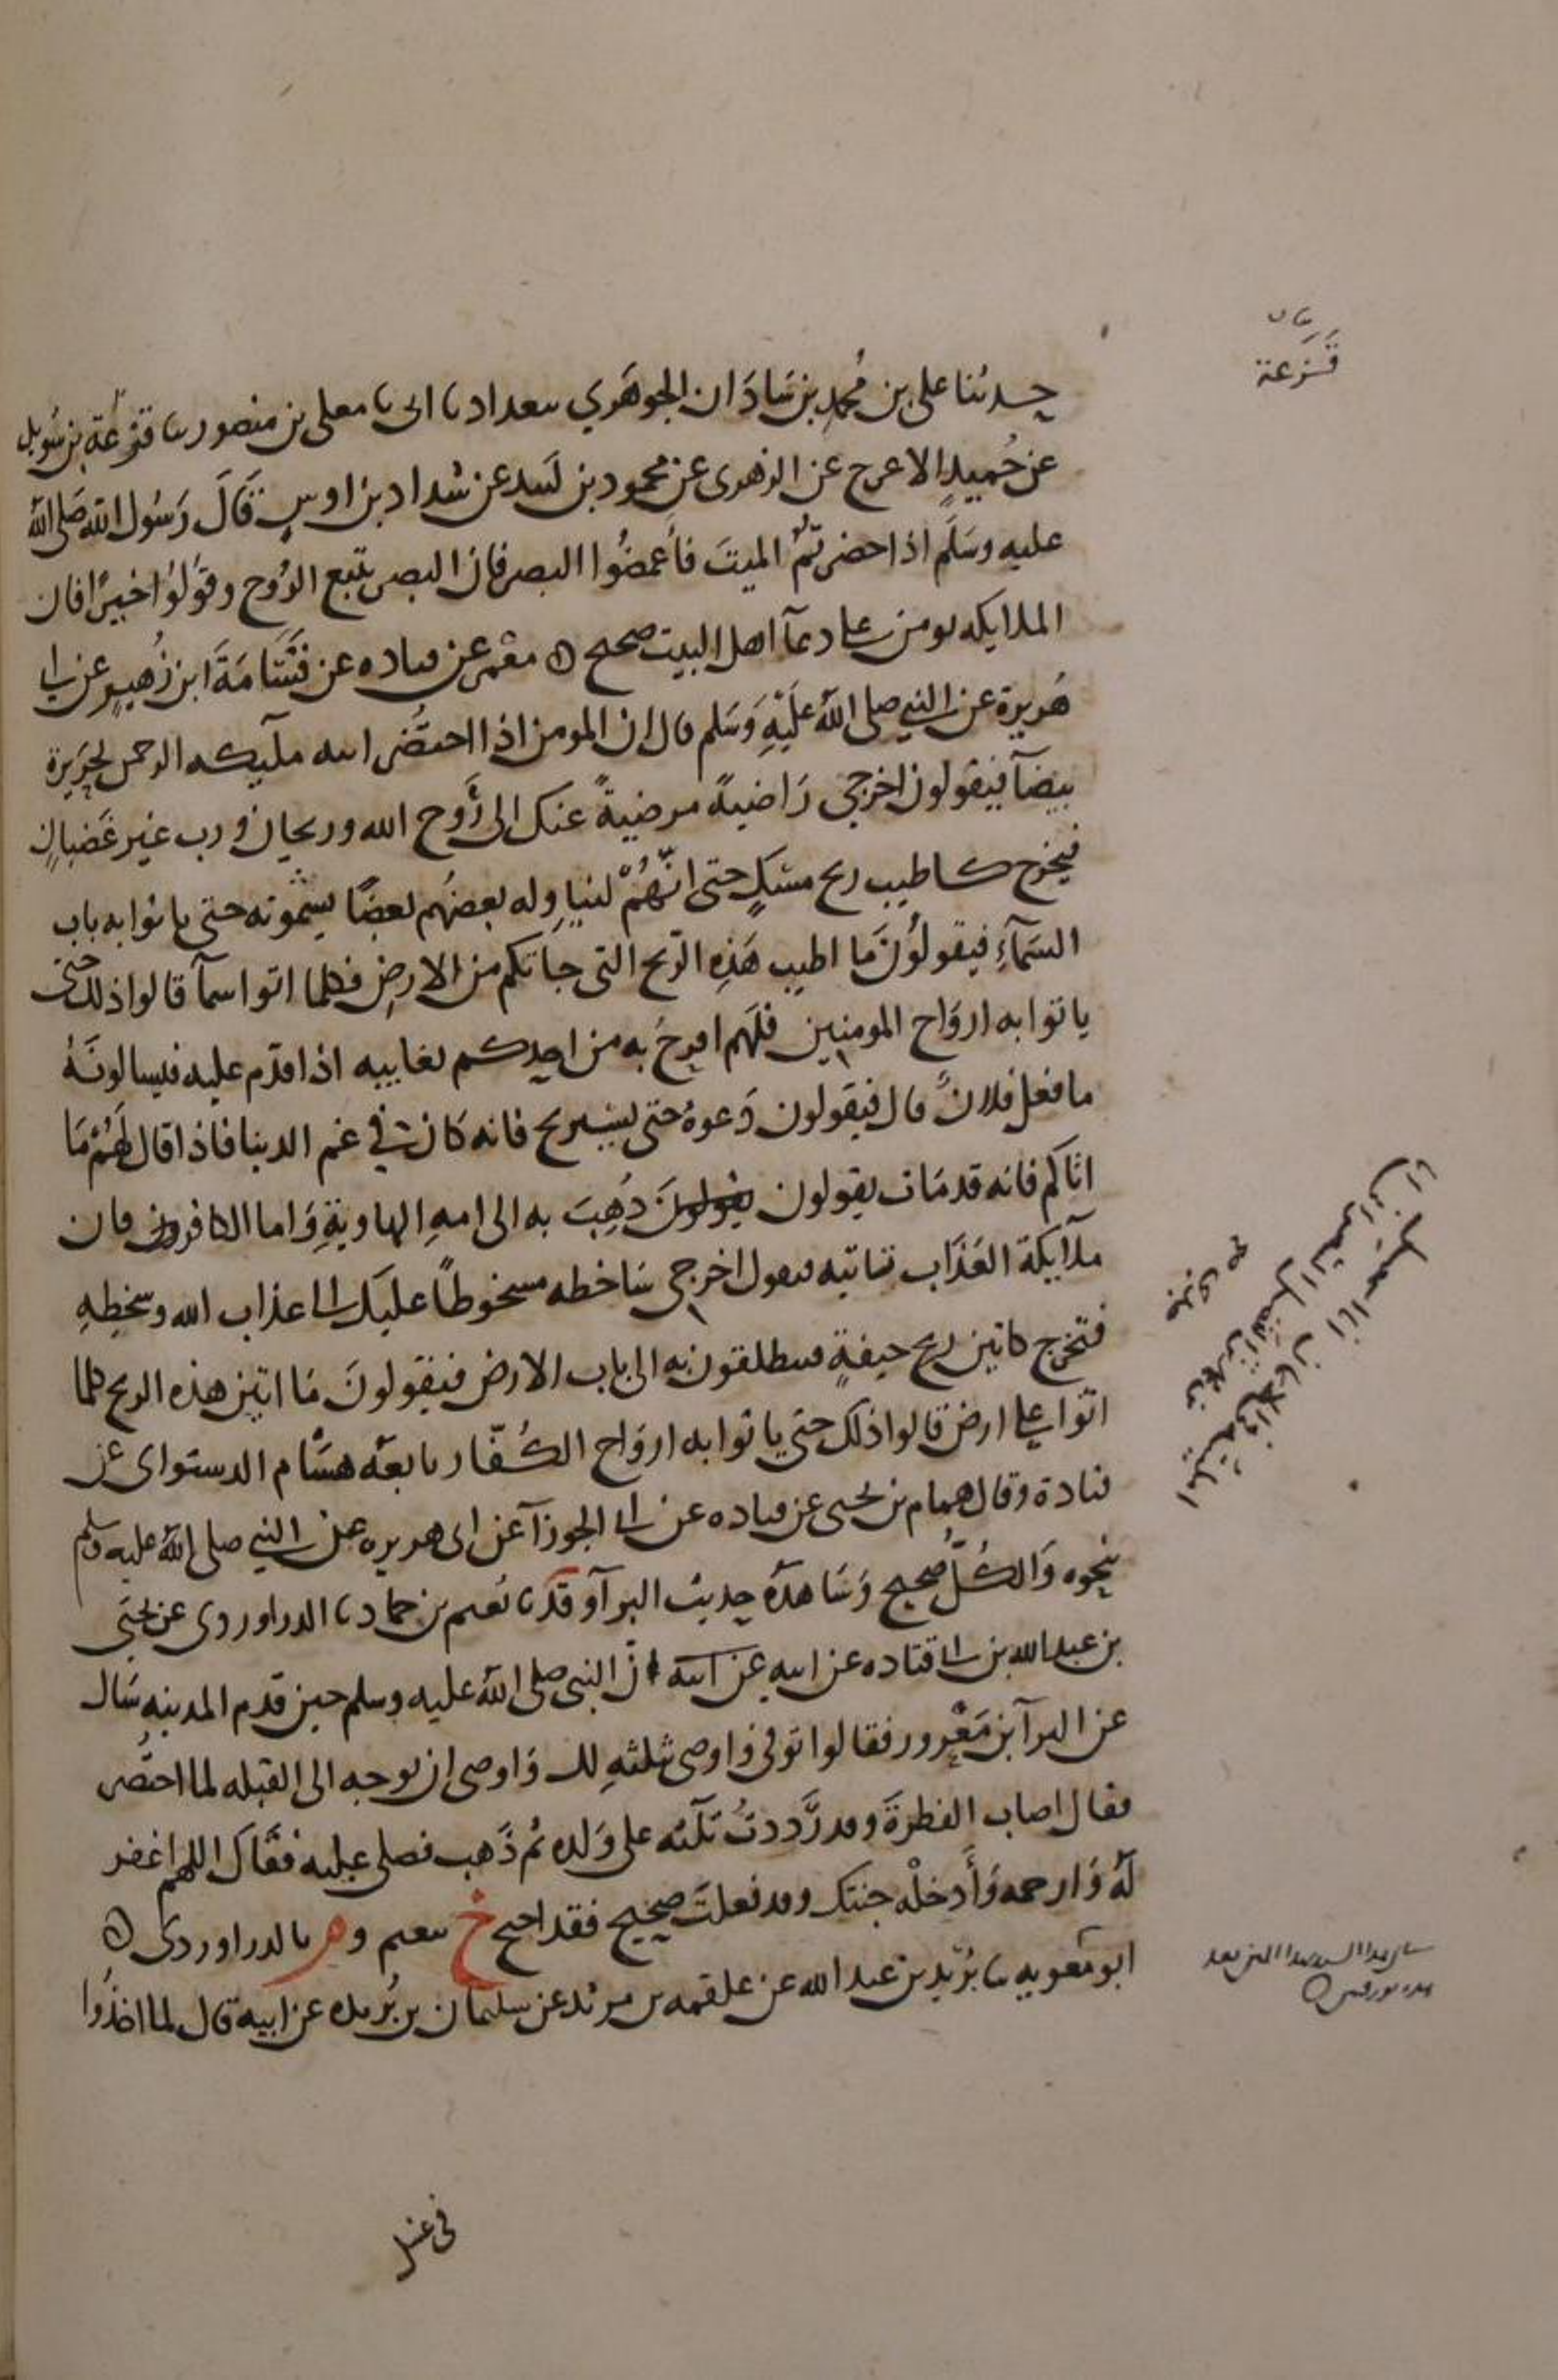 قَزَعة
حدثنا على بن مُحمدِ بن شاذَان الجوهَري ببغداد نا ابى نا معلى بن منصور نا قزعَة بن سُويل
عن حُميدٍ الاعرج عن الزهرى عن محمود بن لبيد عن شداد بن اوسٍ قَالَ رَسُول الله صَلى الله
عليه وسَلَم اذا حضرتمُ الميتَ فأغمضُوا البصر فان البصر يتبع الرُوح وقوُلوُا خيرًا فان
الملايكه يومن على دعآ اهل البيت صحيح ه معمر عن قتاده عن قَسَامَةَ ابن زُهيرٍ عن ابى
هُريرة عن النبي صلى اللهُ عَلَيْهِ وَسَلم قال ان المومن اذا احتضُر اتته ملآيكه الرحمن بحَرِيرة
بيضآ فيقولون اخرجى رَاضيةً مرضيةً عنك الى رَوح الله وريحان ورب غير غَضبانٍ
فيخرج كاطيب ريح مسْكٍ حتى انَّهُمْ ليناوِله بعضهُم بعضًا يشمونه حتى ياتوا به باب
السَمآءِ فيقولُونَ مَا اطيب هَذِهِ الرّيح التى جآتكم من الارضِ فكلما اتوا سمآ قالوا ذلك حتى
ياتوا به اروَاح المومنين فلَهم افرحُ به من احدكم بغايبه اذا قدم عليه فيسالونَهُ
ما فعل فلانٌ قال فيقولون دَعوهُ حتى يستريح فانه كان فى غم الدنيا فاذا قال لَهُمْ مَا
اتاكم فانه قد مَات يقولون ذُهِبَ به الى امهِ الهاويةِ وَاما الكافر فان
ملآيكة العَذَاب تاتيه فتقول اخرجى سَاخطه مسخوطًا عليك الى عذاب الله وسَخطِهِ
فتخرج كانتن ريح جيفةٍ فينطلقون به الى باب الارض فيقولونَ مَا انتن هذه الريح كلما
اتوا على ارض قالوا ذلك حتى ياتوا به اروَاح الكُفّار تابعَه هشام الدستواى عن
قتادة وقال همام بن يحيى عن قتاده عن ابى الجوزآ عن ابى هريره عن النبي صلى الله عليه وسلم
نحوه وَالكُلُّ صحيح وَشاهدُهُ حديث البرآ وقد نا نُعيم بن حماد نا الدراوردى عن يحيَى
بن عبدالله بن ابى قتاده عن ابيه عن ابيه ان النبى صلى الله عليه وسلم حين قدم المدينه سَال
عن البرآ بن مَعْرور فقالوا توفى وَاوصى بثلثهِ لك وَاوصى ان يوجه الى القبله لما احتضُر
فقال اصاب الفطرةَ وقد رَّددتُ ثلثه على وَلده ثم ذَهب فصلى عليه فقَال اللهم اغفر
لَهُ وَارحمه وَأَدخلْه جنتك وقد فعلتَ صحيح فقد احتج خ بنعيم و م بالدراوردى ه
ابو معويه نا بُرَيد بن عبدالله عن علقمه بن مرثد عن سليمان بن بُريده عن ابيه قال لما اخذُوا
فى غسل